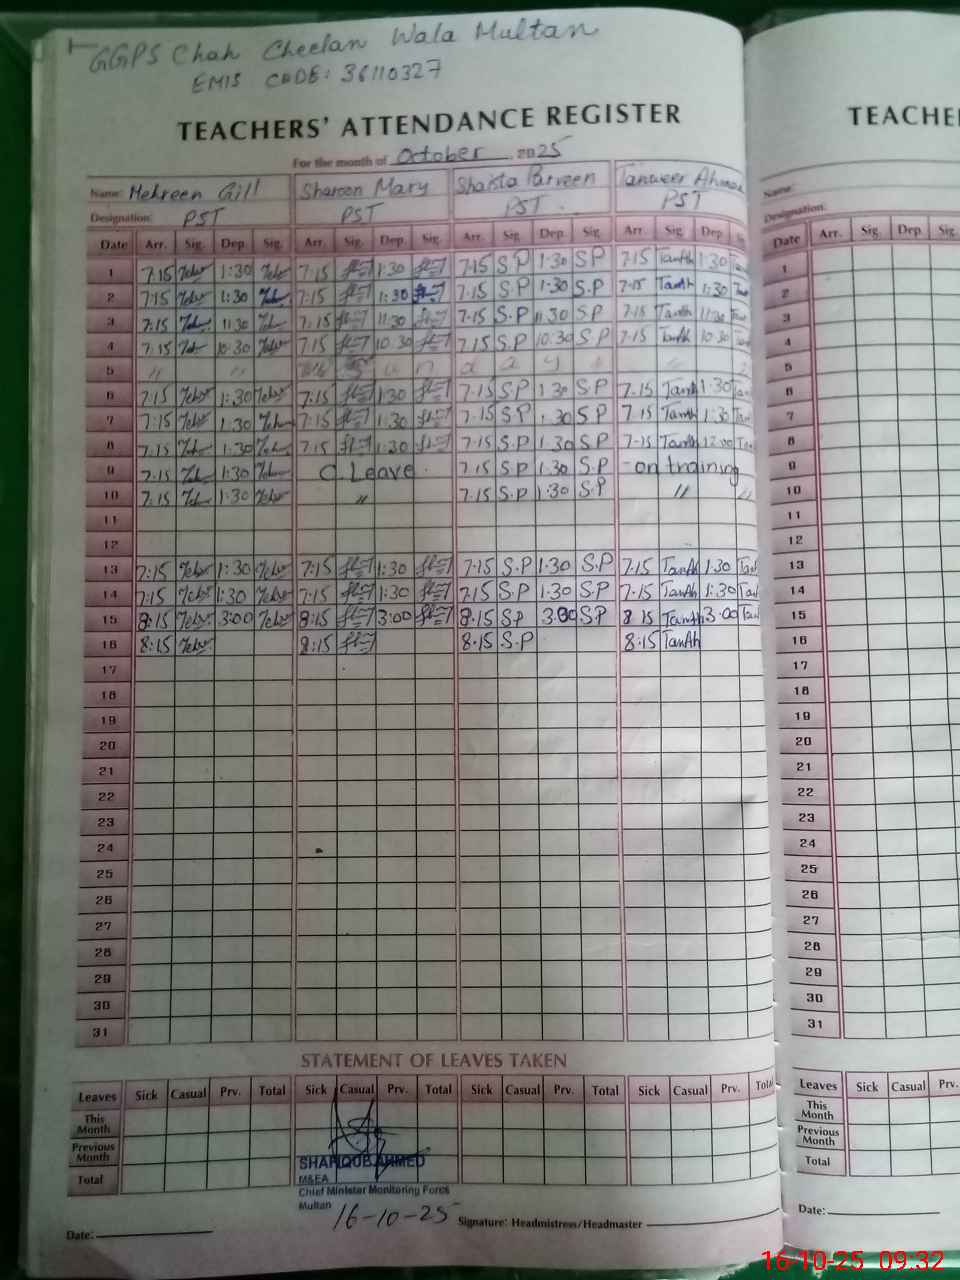 GGPS Chah Cheelan Wala Multan
EMIS CODE: 36110327
TEACHERS' ATTENDANCE REGISTER
For the month of October 2025
Name: Mehreen Gill Sharoon Mary Shaista Parveen Tanweer Ahmad
Designation: PST PST PST PST
Date Arr. Sig. Dep. Sig. Arr. Sig. Dep. Sig. Arr. Sig. Dep. Sig. Arr. Sig. Dep.
1 7:15 1:30 7:15 1:30 7:15 S.P 1:30 S.P 7:15 TanAh 1:30
2 7:15 1:30 7:15 1:30 7.15 S.P 1.30 S.P 7.15 TanAh 1:30
3 7:15 11:30 7:15 11:30 7.15 S.P 11.30 S.P 7.15 TanAh 11:30
4 7:15 10:30 7:15 10:30 7.15 S.P 10.30 S.P 7.15 TanAh 10:30
5 " " S u n d a y
6 7:15 1:30 7.15 1:30 7.15 S.P 1.30 S.P 7.15 TanAh 1.30
7 7:15 1.30 7:15 1:30 7.15 S.P 1.30 S.P 7.15 TanAh 1:30
8 7:15 1:30 7:15 1:30 7.15 S.P 1.30 S.P 7-15 TanAh 12:00
9 7:15 1:30 C. Leave 7.15 S.P 1.30 S.P on training
10 7:15 1:30 " 7.15 S.P 1:30 S.P " "
11
12
13 7:15 1:30 7:15 1:30 7.15 S.P 1:30 S.P 7.15 TanAh 1:30
14 7:15 1:30 7:15 1:30 7.15 S.P 1:30 S.P 7.15 TanAh 1:30
15 8:15 3:00 8:15 3:00 8.15 S.P 3.00 S.P 8.15 TanAh 3.00
16 8:15 8:15 8.15 S.P 8.15 TanAh
17
18
19
20
21
22
23
24
25
26
27
28
29
30
31
STATEMENT OF LEAVES TAKEN
Leaves Sick Casual Prv. Total Sick Casual Prv. Total Sick Casual Prv. Total Sick Casual Prv. Total
This Month
Previous Month
Total
SHAFIQUE AHMED
M&EA
Chief Minister Monitoring Force
Multan
16-10-25
Date: Signature: Headmistress/Headmaster
Name:
Designation:
Date Arr. Sig. Dep. Sig.
1
2
3
4
5
6
7
8
9
10
11
12
13
14
15
16
17
18
19
20
21
22
23
24
25
26
27
28
29
30
31
Leaves Sick Casual Prv.
This Month
Previous Month
Total
Date:
16-10-25 09:32